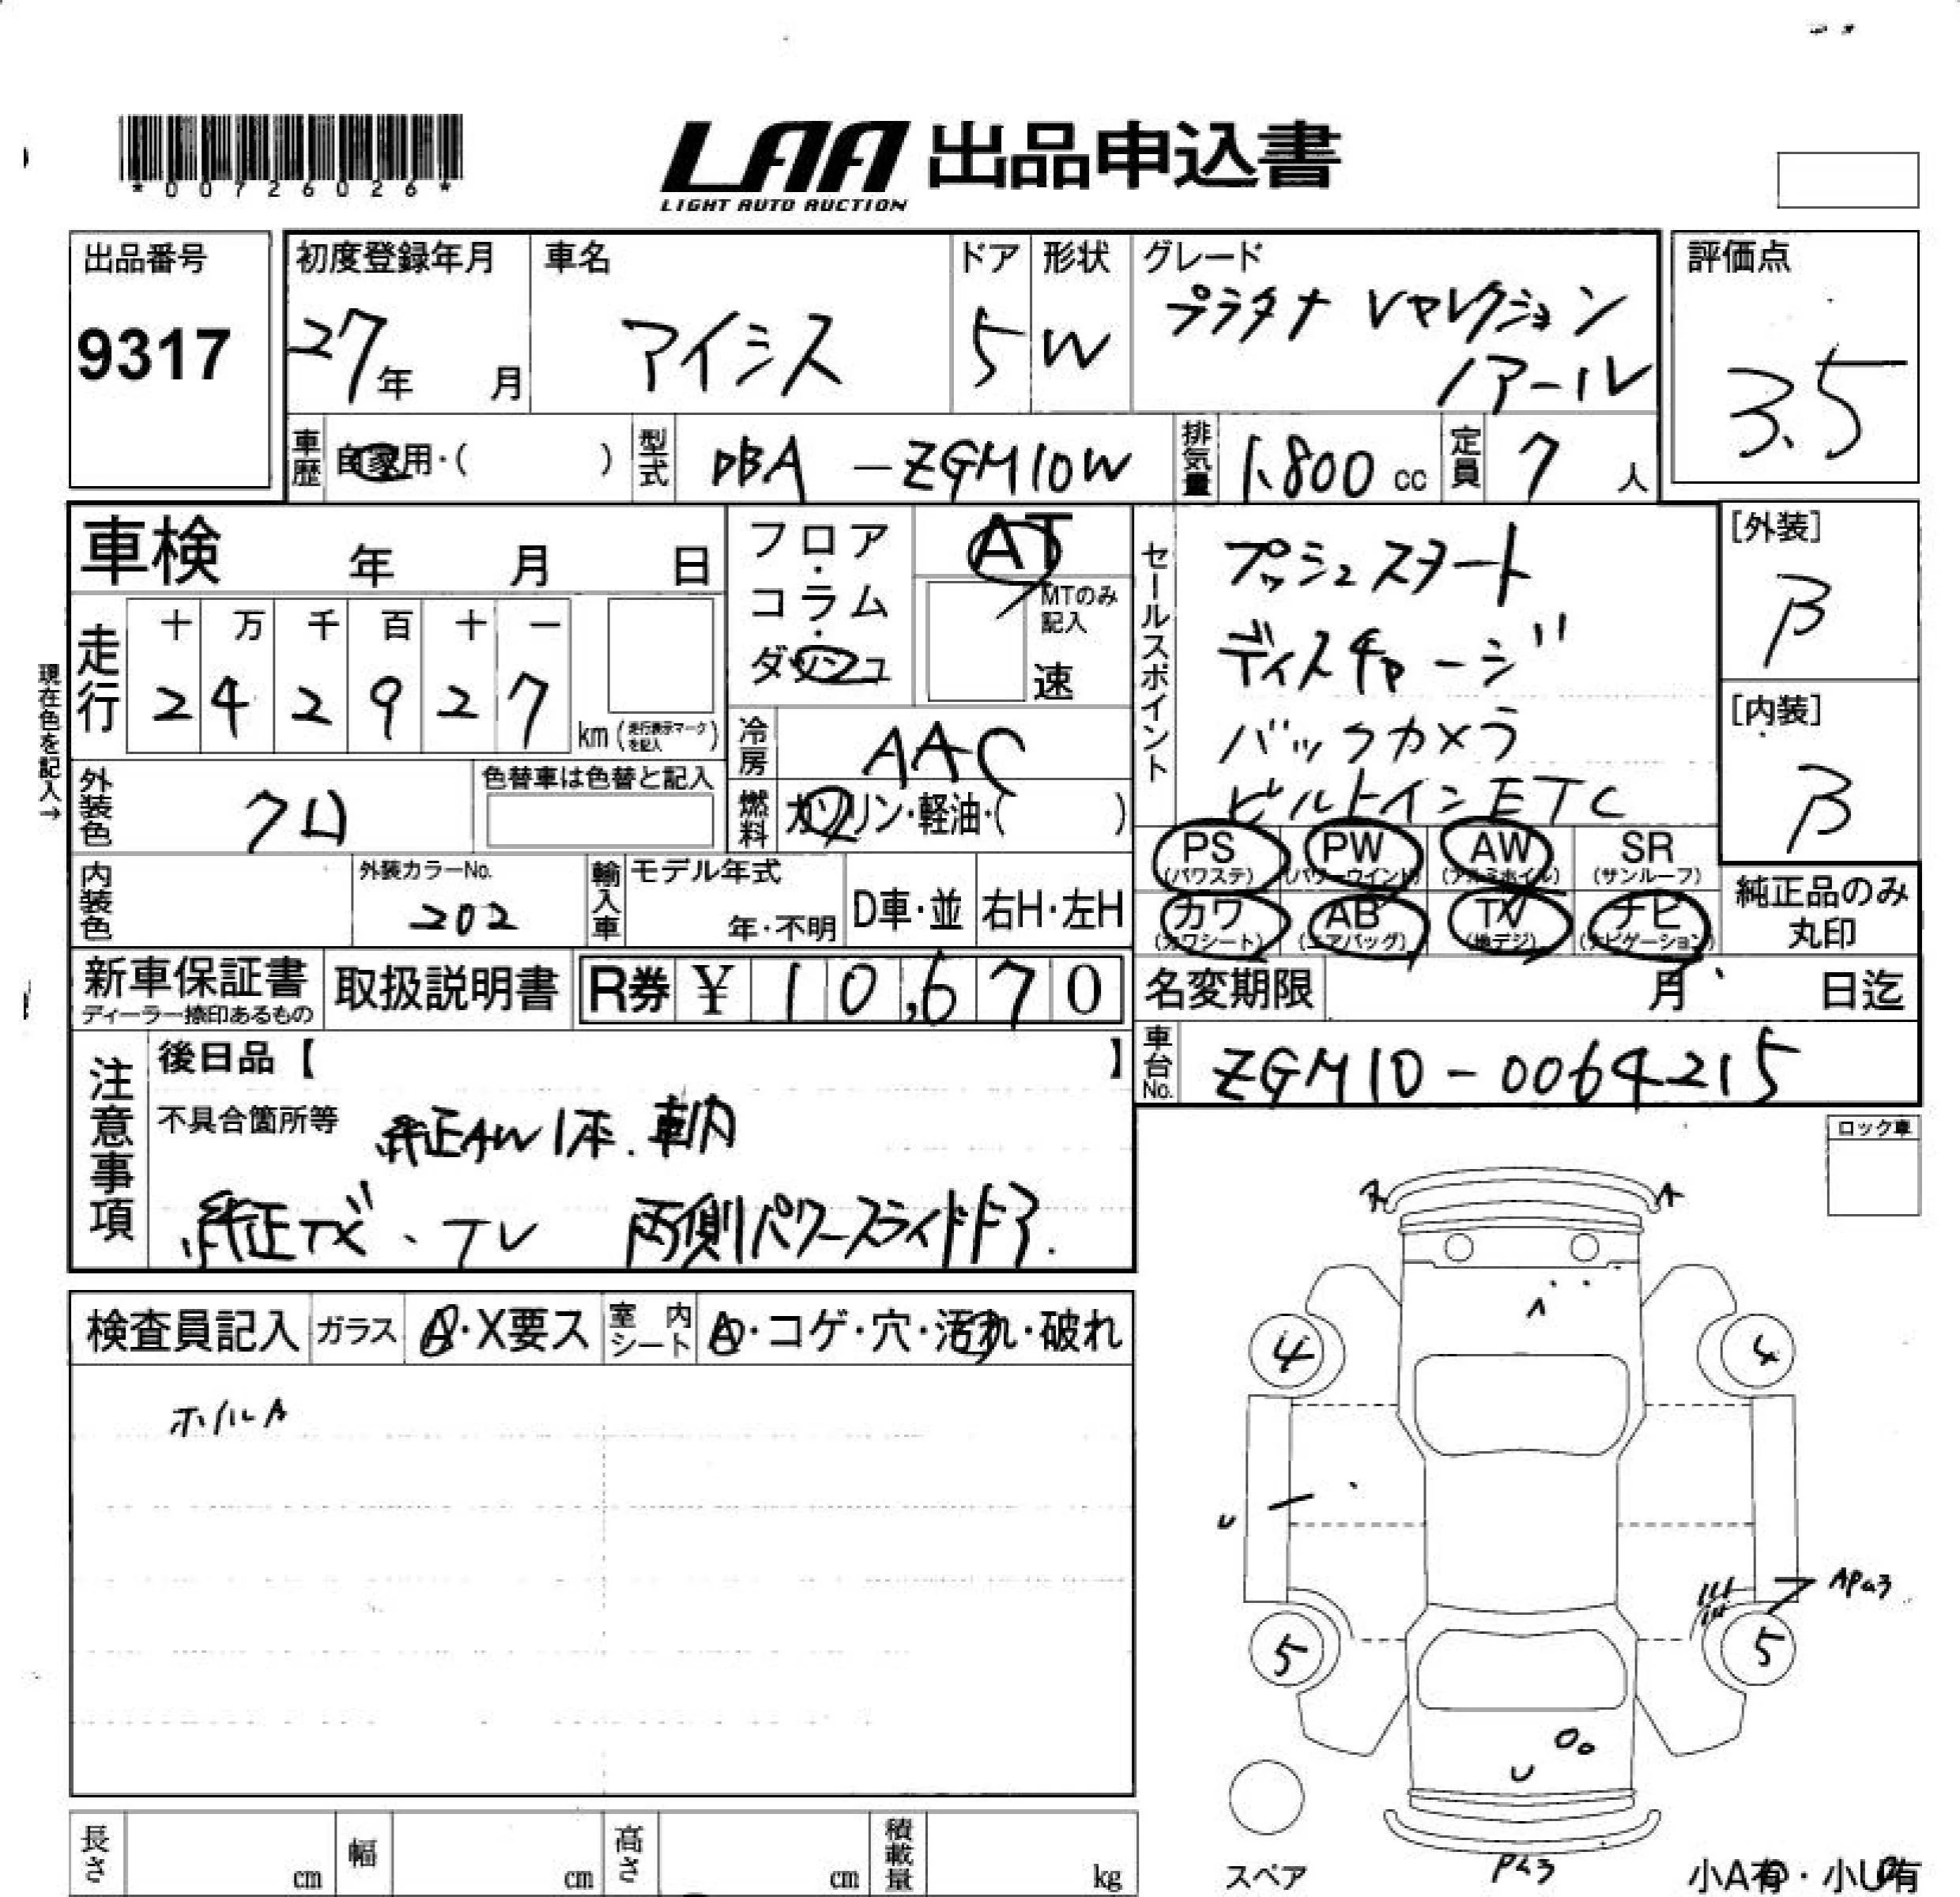 *00726026*
LAA 出品申込書
LIGHT AUTO AUCTION
出品番号
9317
初度登録年月
27年 月
車名
アイシス
ドア
5
形状
W
グレード
プラタナ Vセレクション
ノアール
評価点
3.5
車歴 自家用・( )
型式 DBA-ZGM10W
排気量 1.800 cc
定員 7 人
車検 年 月 日
フロア・コラム・ダッシュ
AT
MTのみ記入
速
走行
十 万 千 百 十 一
2 4 2 9 2 7
km(走行表示マークを記入)
現在色を記入→
冷房 AAC
燃料 ガソリン・軽油・( )
外装色 クロ
色替車は色替と記入
内装色
外装カラーNo.
202
輸入車
モデル年式
年・不明
D車・並
右H・左H
セールスポイント
プッシュスタート
ディスチャージ
バックカメラ
ビルトインETC
[外装]
B
[内装]
B
PS (パワステ)
PW (パワーウインド)
AW (アルミホイル)
SR (サンルーフ)
カワ (カワシート)
AB (エアバッグ)
TV (地デジ)
ナビ (ナビゲーション)
純正品のみ丸印
新車保証書
ディーラー捺印あるもの
取扱説明書
R券 ¥ 10,670
名変期限 月 日迄
車台No. ZGM10-0064215
注意事項
後日品【 】
不具合箇所等 純正AW1本.車内
純正ナビ、TV 両側パワースライドドア.
ロック車
検査員記入
ガラス A・X要ス
室内シート A・コゲ・穴・汚れ・破れ
ホイルA
A
A
A
4
4
U
APa3
5
5
U
Pa3
スペア
小A有・小U有
長さ cm
幅 cm
高さ cm
積載量 kg